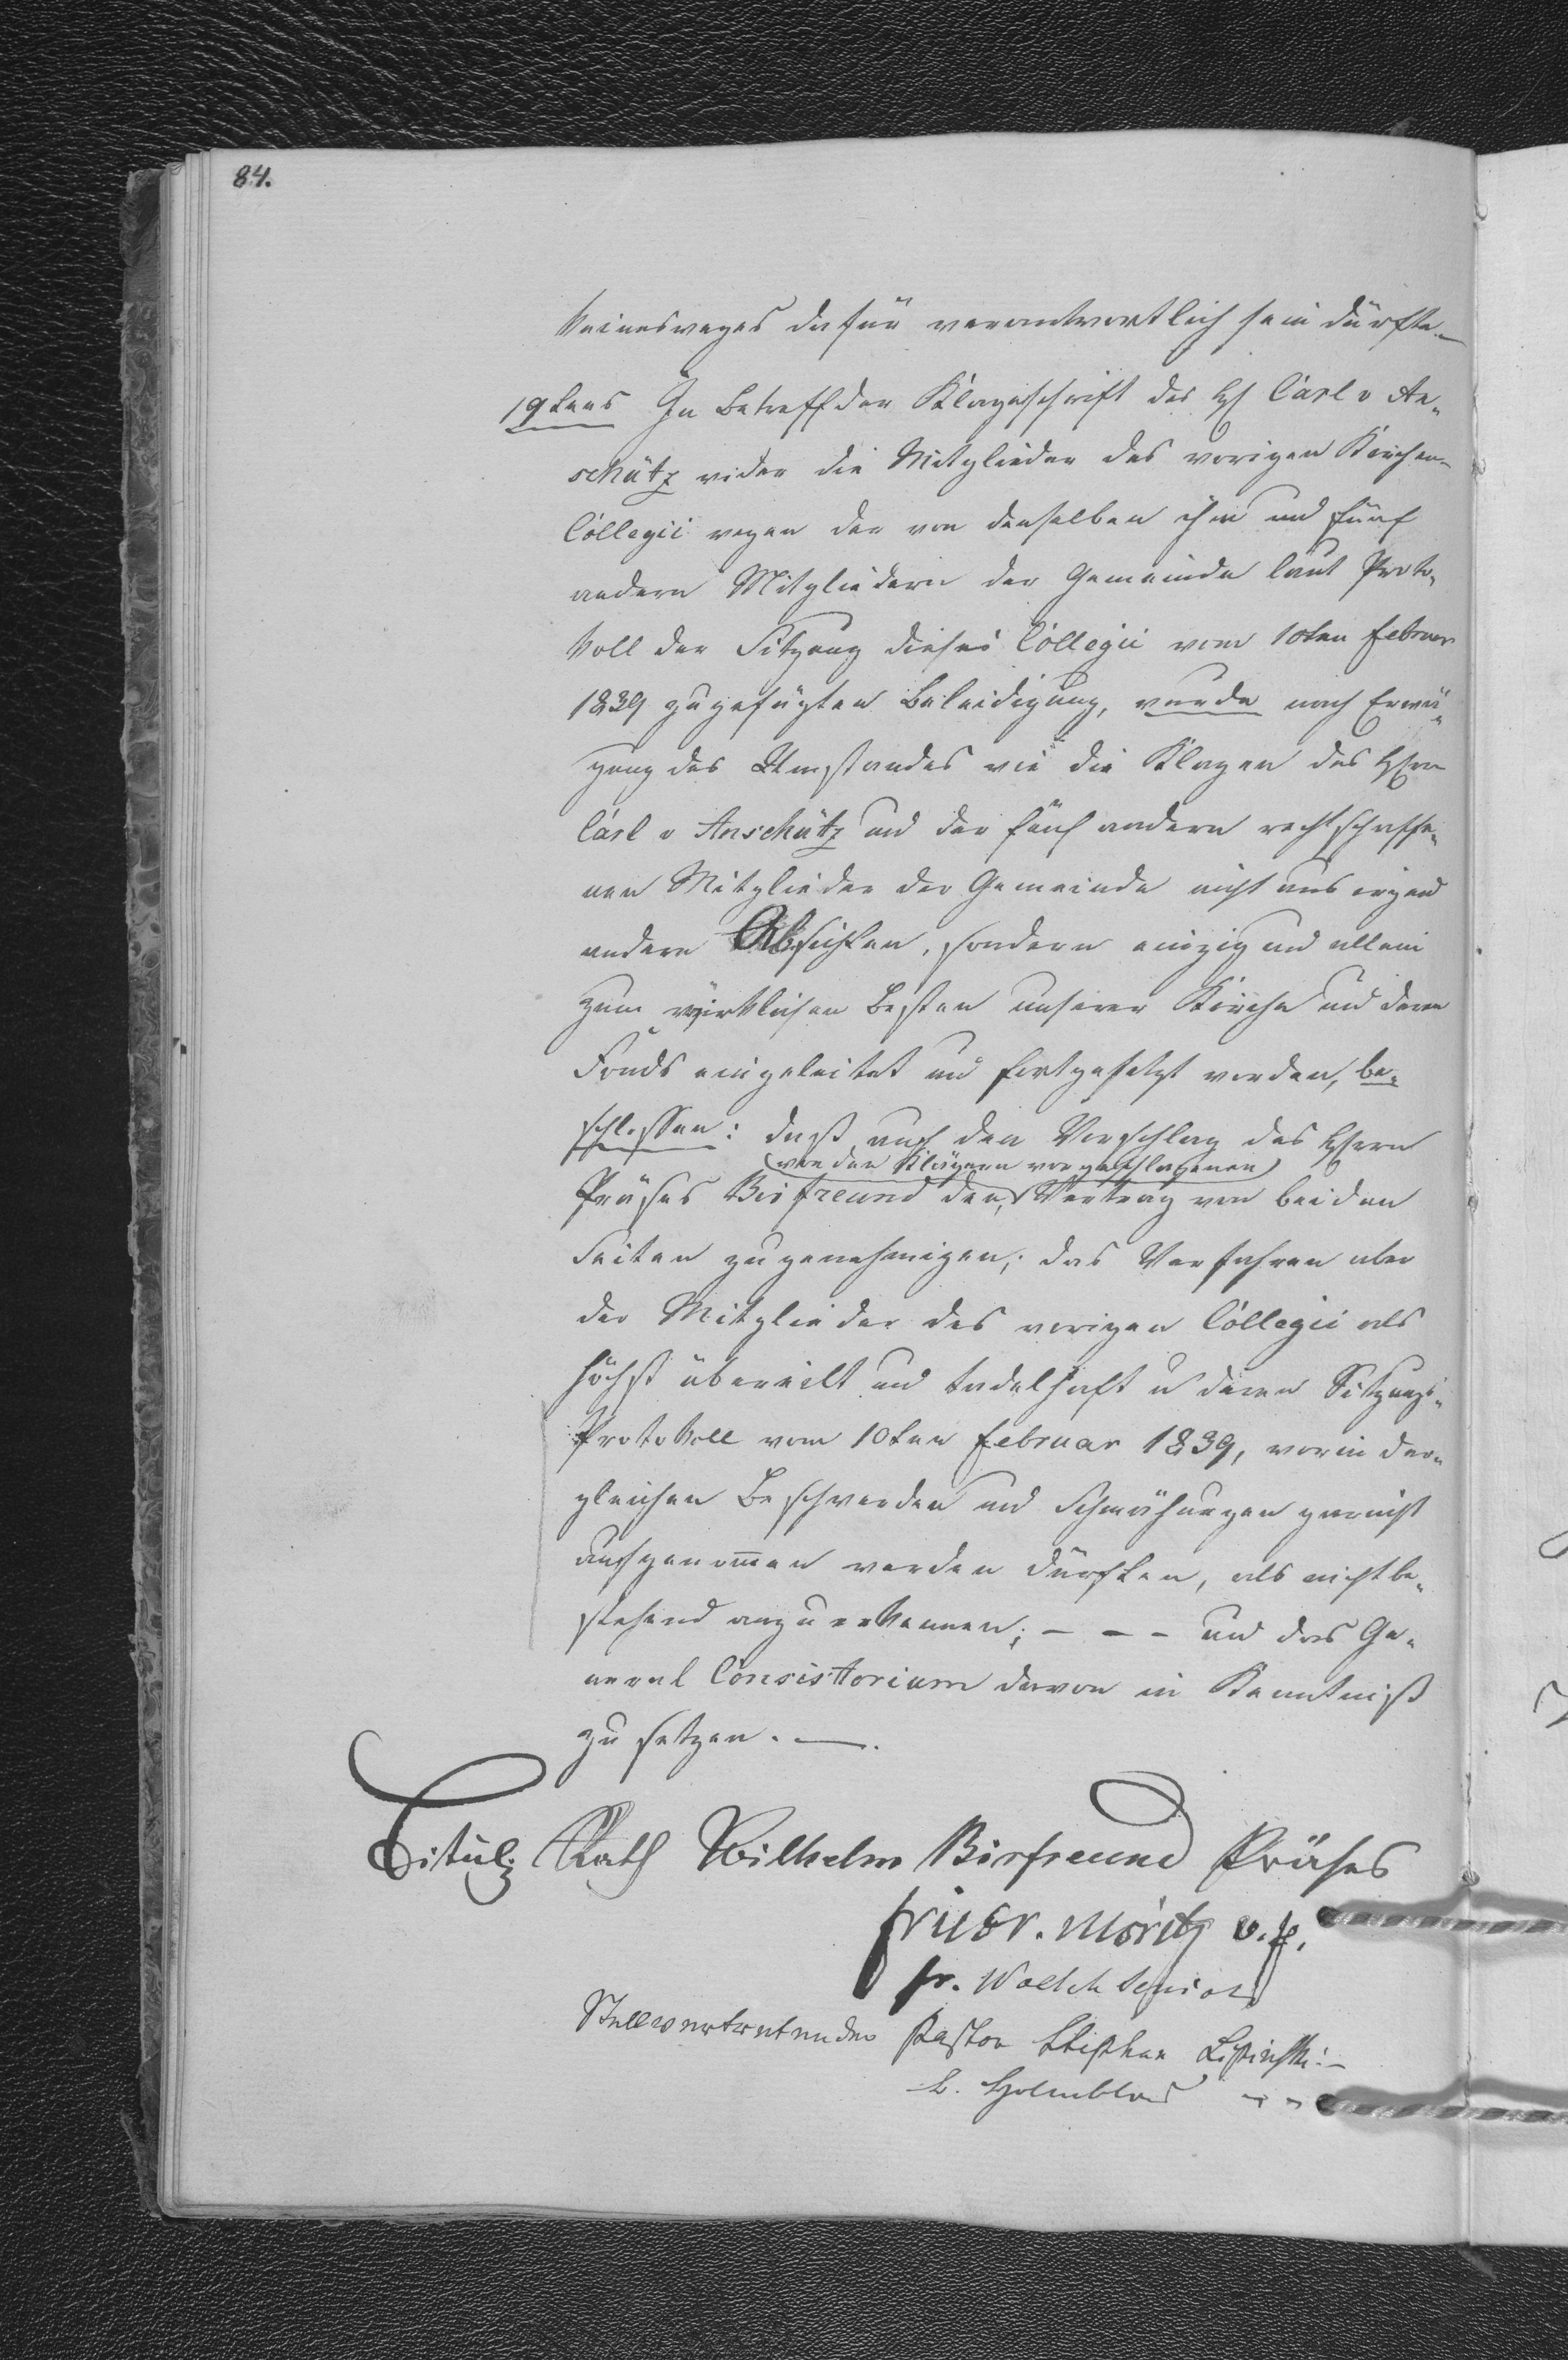 84.
keineswegs dafür verantwortlich sein dürfte.—
19tens In Betreff der Klageschrift des H Carl v An-
schütz wider die Mitglieder des vorigen Kirchen-
Collegii wegen der von denselben ihm und fünf
andern Mitgliedern der Gemeinde laut Proto-
koll der Sitzung dieses Collegii vom 10ten Februar
1839 zugefügten Beleidigung, wurde nach Erwä-
gung des Umstandes wie die Klagen des Herrn
Carl v Anschütz und der fünf andern rechtschaffe-
nen Mitglieder der Gemeinde nicht aus irgend
andern Absichten, sondern einzig und allein
zum wirklichen Besten unserer Kirche und deren
Fonds eingeleitet und fortgesetzt worden, be-
schlossen: daß auf den Vorschlag des Herrn
(von den Klägern vorgeschlagenen)
Präses Birfreund den Vertrag von beiden
Seiten zu genehmigen; das Verfahren aber
der Mitglieder des vorigen Collegii als
höchst übereilt und tadelhaft u deren Sitzungs-
Protokoll vom 10ten Februar 1839, worin der-
gleichen Beschwerden und Schmähungen gar nicht
aufgenommen werden dürften, als nicht be-
stehend anzuerkennen; – – – und das Ge-
neral Consistorium davon in Kenntniß
zu setzen. —.
Titul: Rath Wilhelm Birfreund Präses
Friedr. Moritz v. P.
fr. Woelck Senior
Stellvertretender Pastor Stephan Lipinski:—
L. Holmblad